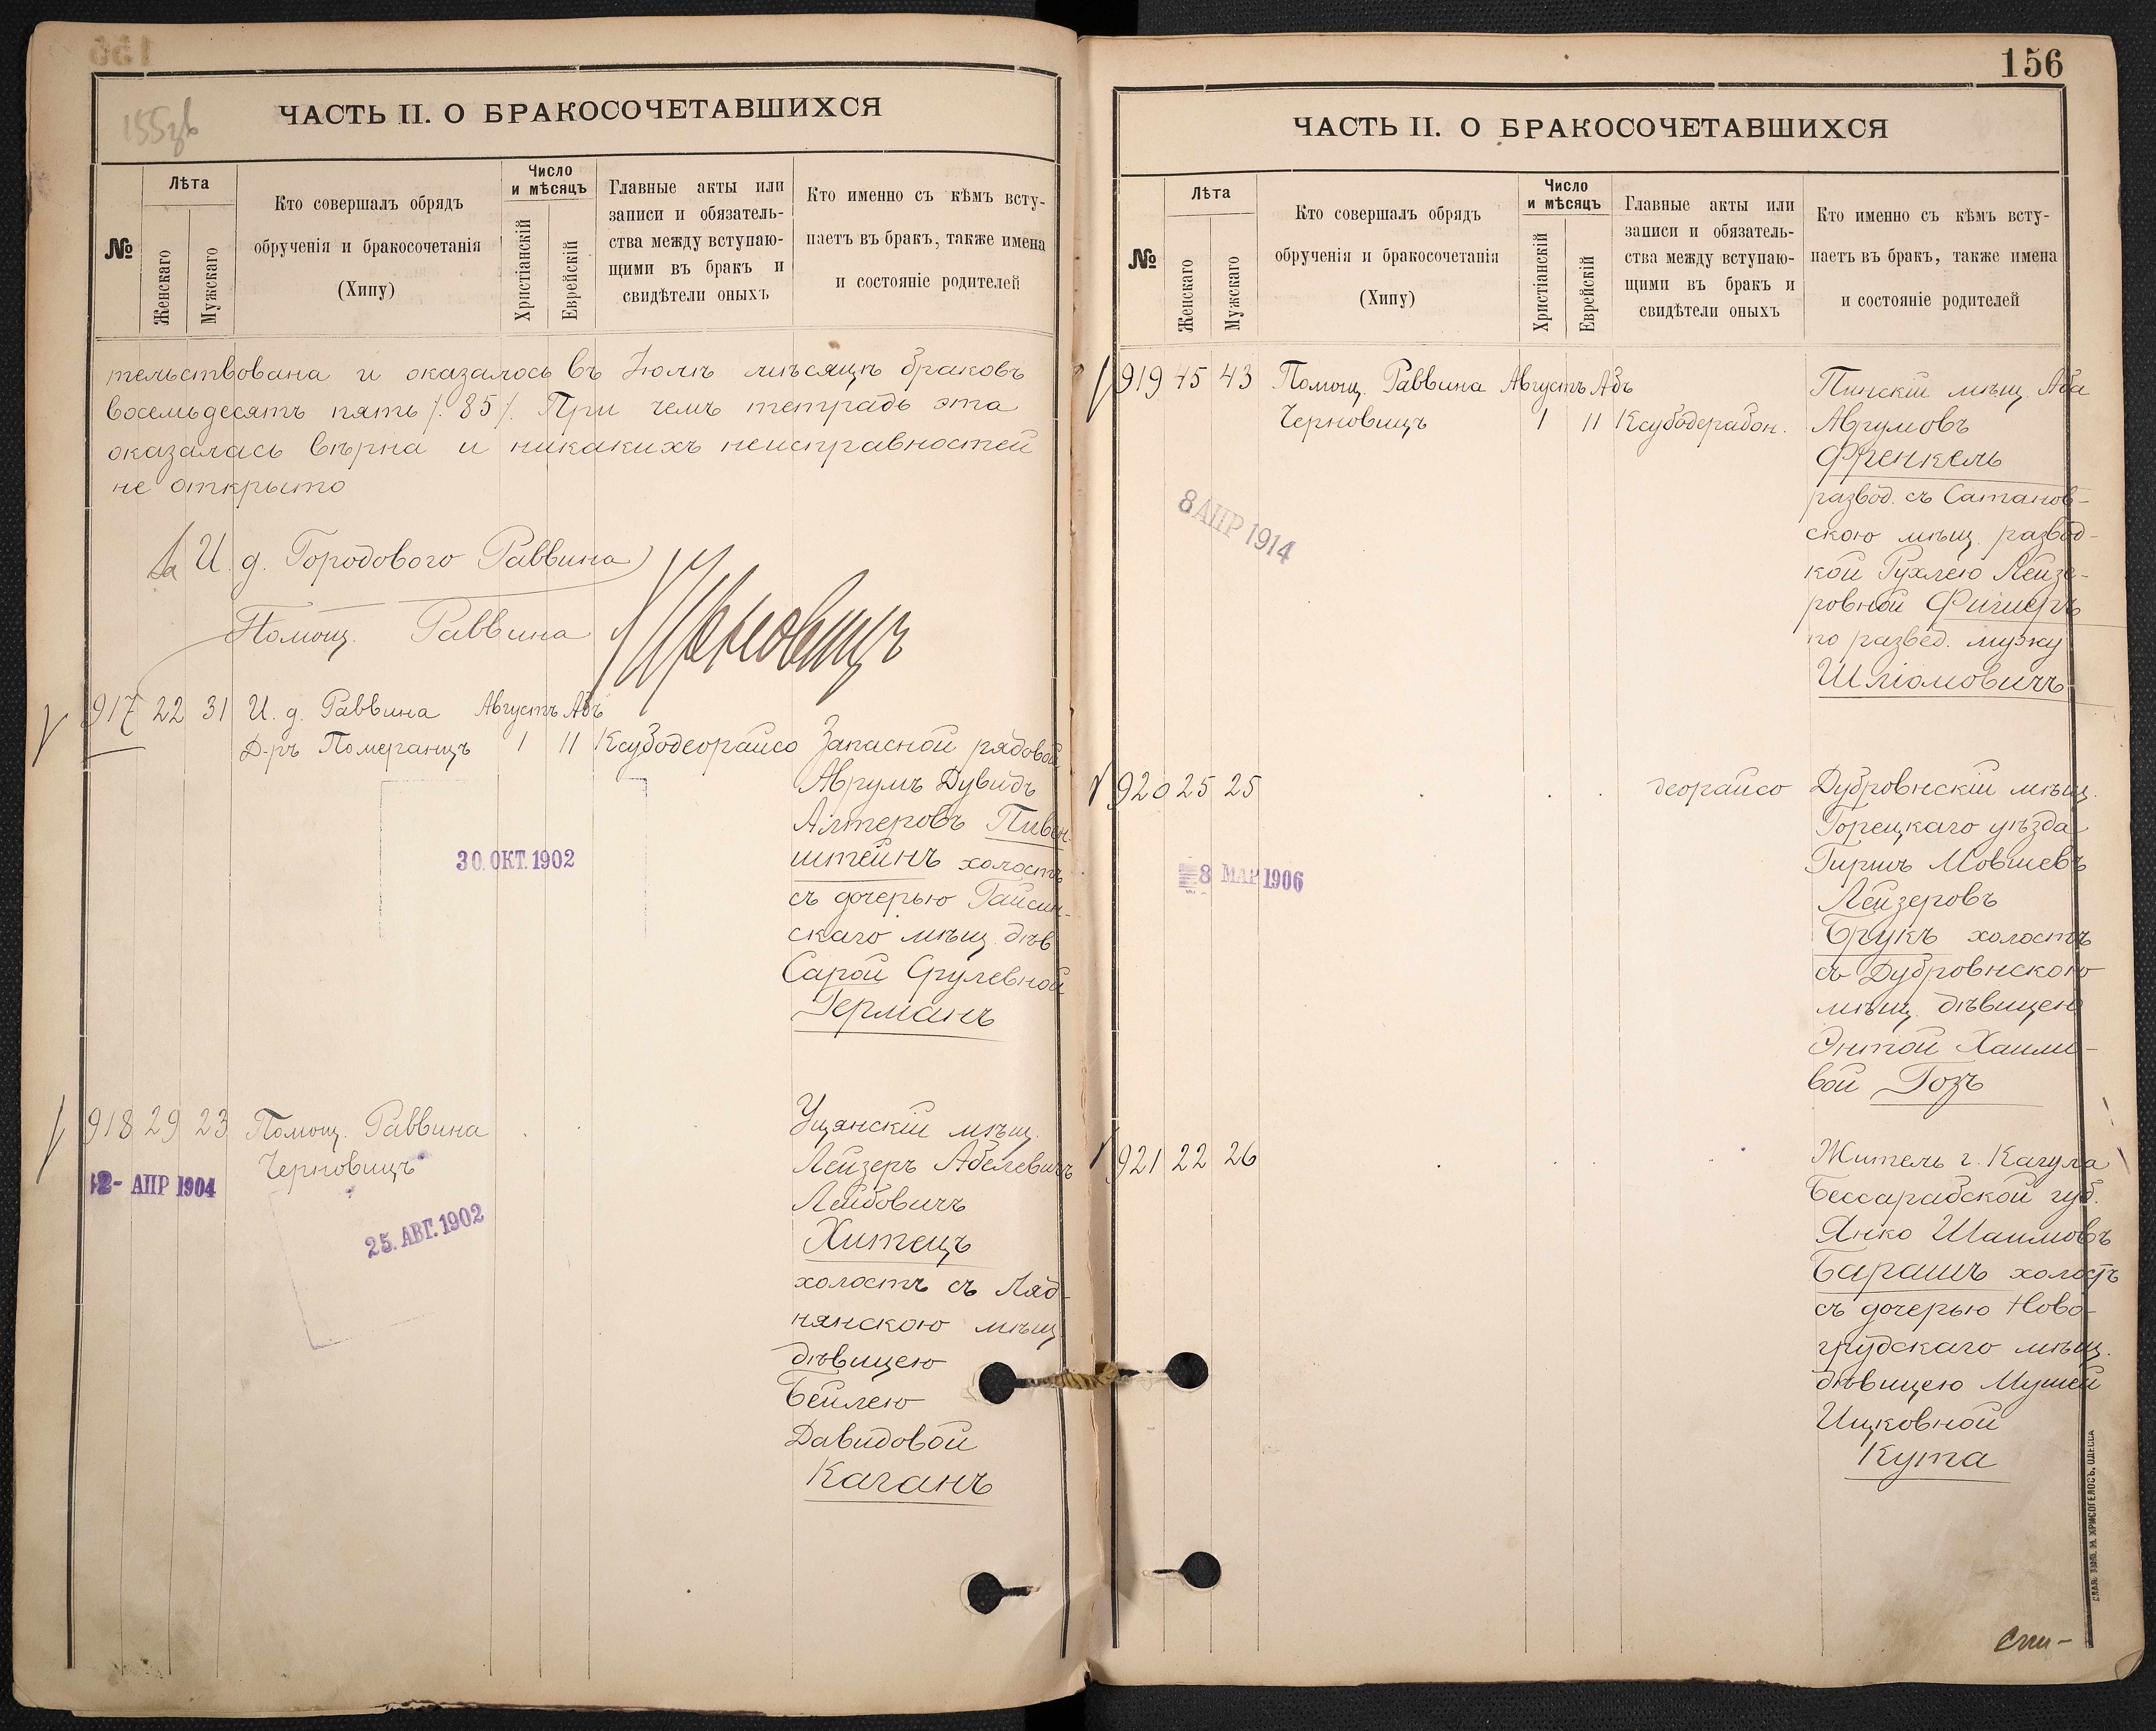 155зв
ЧАСТЬ II. О БРАКОСОЧЕТАВШИХСЯ
№
Лѣта
Женскаго
Мужскаго
Кто совершалъ обрядъ
обрученія и бракосочетанія
(Хипу)
Число
и мѣсяцъ
Христіанскій
Еврейскій
Главные акты или
записи и обязатель-
ства между вступаю-
щими въ бракъ и
свидѣтели оныхъ
Кто именно съ кѣмъ всту-
паетъ въ бракъ, также имена
и состояніе родителей
тельствована и оказалось въ Іюлѣ мѣсяцѣ браковъ
восемьдесятъ пять /. 85 /. При чемъ тетрадь эта
оказалась вѣрна и никакихъ неисправностей
не открыто
За И. д. Городового Раввина
Помощ. Раввина Черновицъ
917 22 31 И. д. Раввина Августъ Абъ
Д-ръ Померанцъ 1 11 Ксубодеорайсо Запасной рядовой
Аврумъ Дувидъ
Алтеровъ Пивен-
штейнъ холостъ
съ дочерью Гайсин-
скаго мѣщ. дѣв
Сарой Срулевной
Германъ
30. ОКТ. 1902
918 29 23 Помощ. Раввина
Черновицъ
2- АПР 1904
25. АВГ. 1902
Ущянскій мѣщ.
Лейзеръ Абелевичъ
Лейбовичъ
Хитецъ
холостъ съ Ляд-
нянскою мѣщ
дѣвицею
Бейлею
Давидовой
Каганъ
156
ЧАСТЬ II. О БРАКОСОЧЕТАВШИХСЯ
№
Лѣта
Женскаго
Мужскаго
Кто совершалъ обрядъ
обрученія и бракосочетанія
(Хипу)
Число
и мѣсяцъ
Христіанскій
Еврейскій
Главные акты или
записи и обязатель-
ства между вступаю-
щими въ бракъ и
свидѣтели оныхъ
Кто именно съ кѣмъ всту-
паетъ въ бракъ, также имена
и состояніе родителей
919 45 43 Помощ. Раввина Августъ Абъ
Черновицъ 1 11 Ксубодерабон.
8 АПР 1914
Пинскій мѣщ. Аба
Аврумовъ
Френкель
развод. съ Сатанов-
скою мѣщ. развод-
кой Рухлею Лейзе-
ровной Фишеръ
по развед. мужу
Шліомовичъ
920 25 25 деорайсо
8 МАР 1906
Дубровнскій мѣщ.
Горецкаго уѣзда
Гиршъ Мовшевъ
Лейзеровъ
Брукъ холостъ
съ Дубровнскою
мѣщ. дѣвицею
Энтой Хаимо-
вой Гозъ
921 22 26
Житель г. Кагула
Бессарабской губ.
Янко Шаимовъ
Барашъ холостъ
съ дочерью Ново-
грудскаго мѣщ.
дѣвицею Мушей
Ицковной
Кута
СЛАВ. ТИПО. Н. ХРИСОГЕЛОСЪ, ОДЕССА